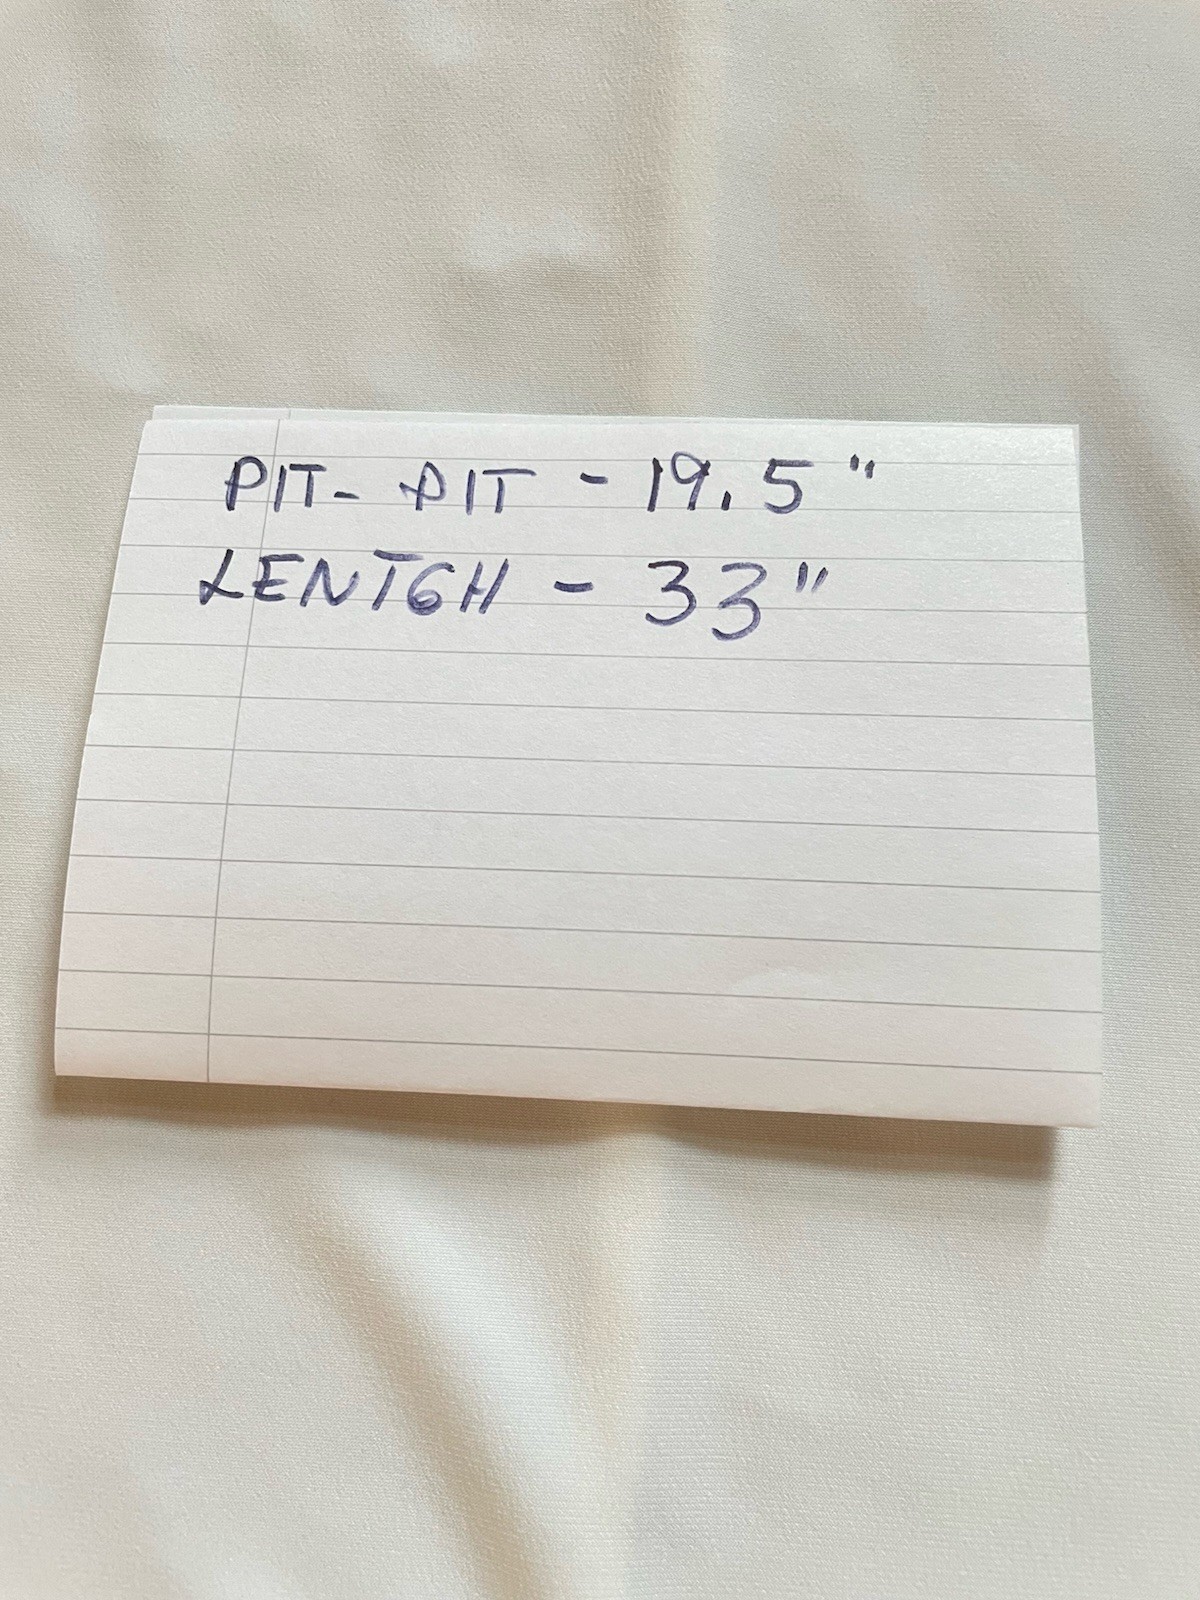 PIT- PIT - 19.5"
LENTGH - 33"